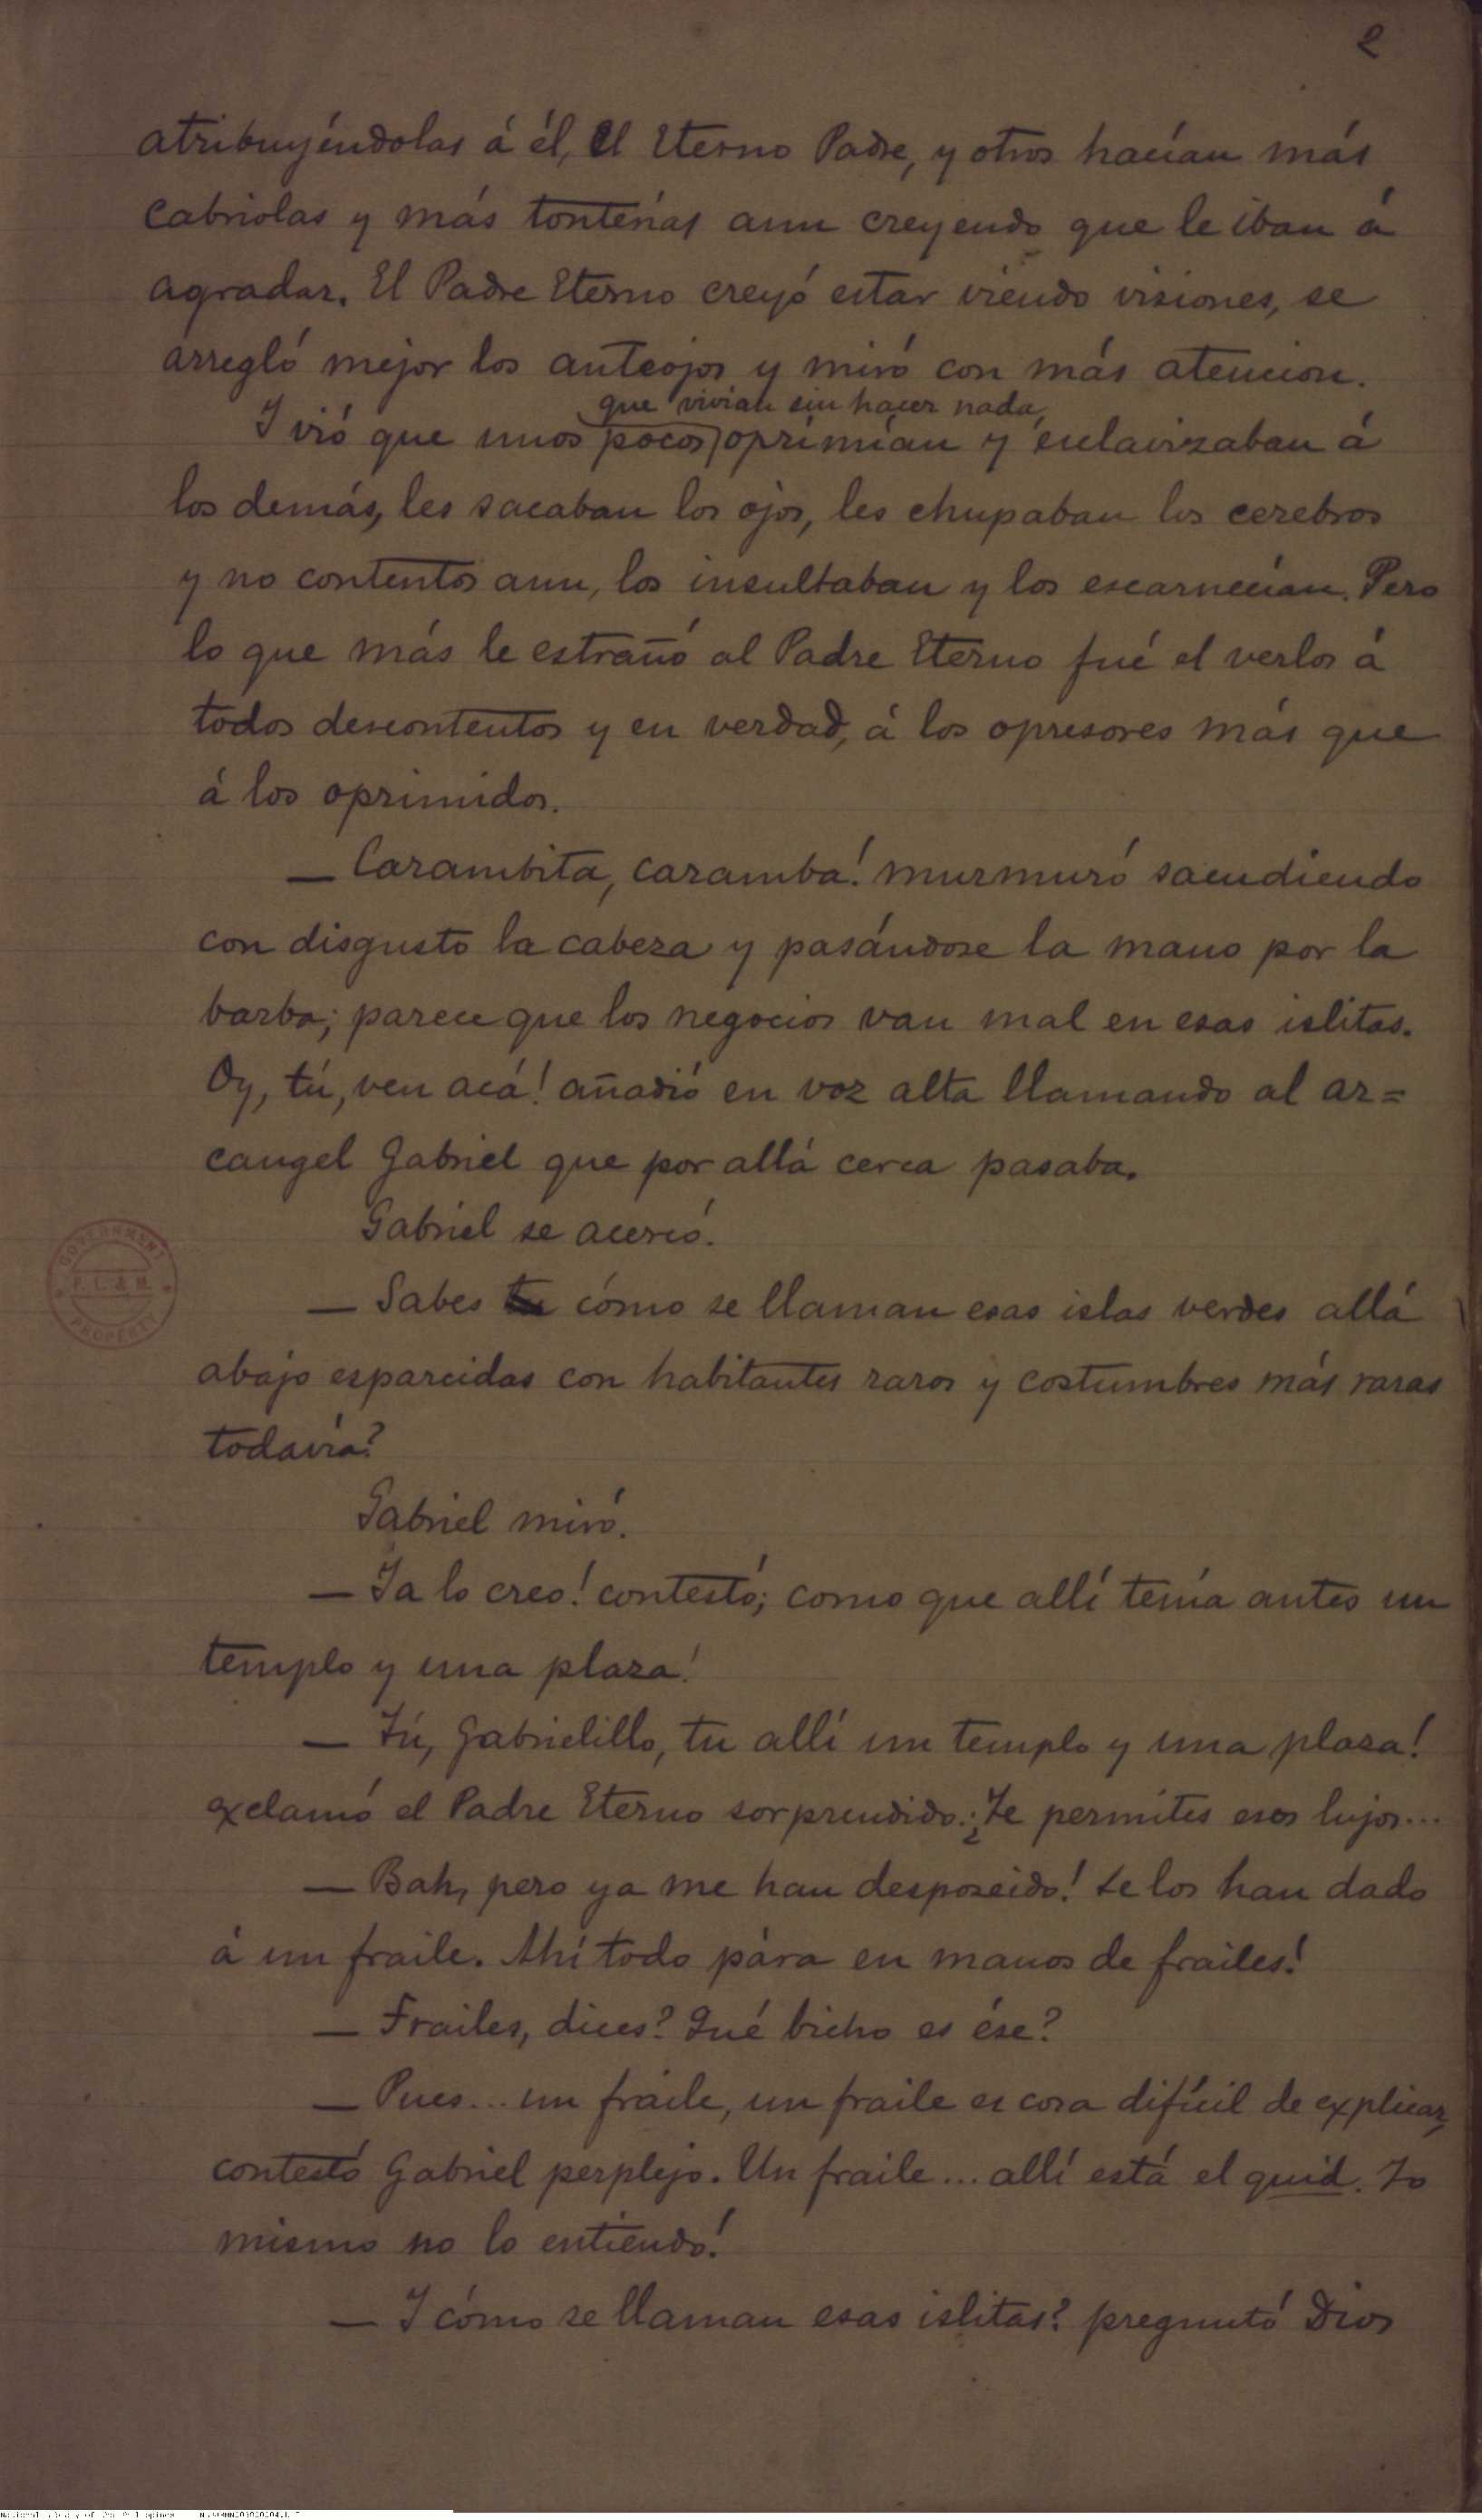 2
atribuyéndolas á él, el Eterno Padre, y otros hacían más
cabriolas y más tonterías aun creyendo que le iban á
agradar. El Padre Eterno creyó estar viendo visiones, se
arregló mejor los anteojos y miró con más atencion.
que vivian sin hacer nada,
Y vió que unos pocos oprimían y esclavizaban á
los demás, les sacaban los ojos, les chupaban los cerebros
y no contentos aun, los insultaban y los escarnecían. Pero
lo que más le estrañó al Padre Eterno fué el verlos á
todos descontentos y en verdad, á los opresores más que
á los oprimidos.
— Carambita, caramba! murmuró sacudiendo
con disgusto la cabeza y pasándose la mano por la
barba; parece que los negocios van mal en esas islitas.
Oy, tú, ven acá! añadió en voz alta llamando al ar=
cangel Gabriel que por allá cerca pasaba.
Gabriel se acercó.
— Sabes tu cómo se llaman esas islas verdes allá
abajo esparcidas con habitantes raros y costumbres más raras
todavía?
Gabriel miró.
— Ya lo creo! contestó; como que allí tenía antes un
templo y una plaza!
— Tú, Gabrielillo, tu allí un templo y una plaza!
exclamó el Padre Eterno sorprendido. ¿Te permites esos lujos...
— Bah, pero ya me han desposeido! se los han dado
á un fraile. Ahí todo pára en manos de frailes!
— Frailes, dices? Qué bicho es ése?
— Pues... un fraile, un fraile es cosa difícil de explicar,
contestó Gabriel perplejo. Un fraile... allí está el quid. Yo
mismo no lo entiendo!
— Y cómo se llaman esas islitas? preguntó Dios
GOVERNMENT
P. L. & M.
PROPERTY
National Library of the Philippines